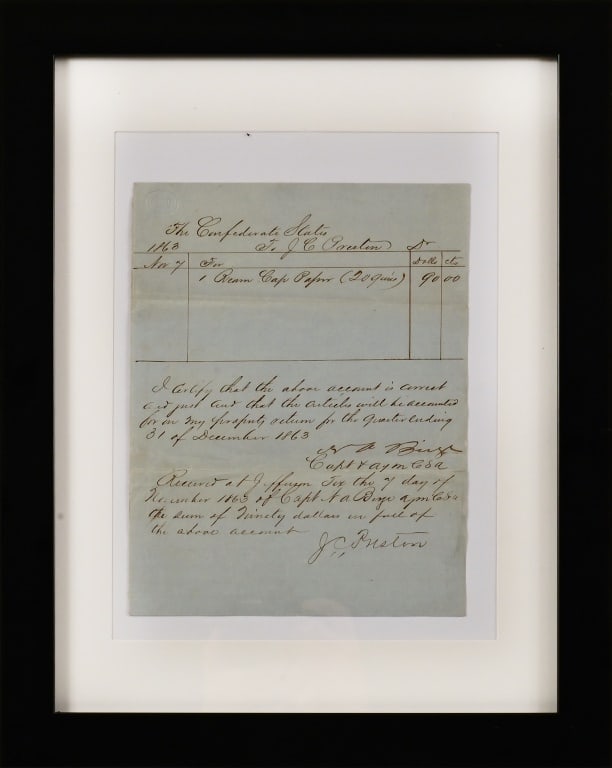 The Confederate States
1863 To J C Preston Dr
Nov 7 For Dolls cts
1 Ream Cap Paper (20 quires) 90 00
I certify that the above account is correct
and just and that the articles will be accounted
for in my property return for the quarter ending
31 of December 1863
N A Birge
Capt & aqm CSA
Received at Jefferson Tex the 7 day of
November 1863 of Capt N A Birge aqm CSa
the sum of Ninety dollars in full of
the above account
J C Preston